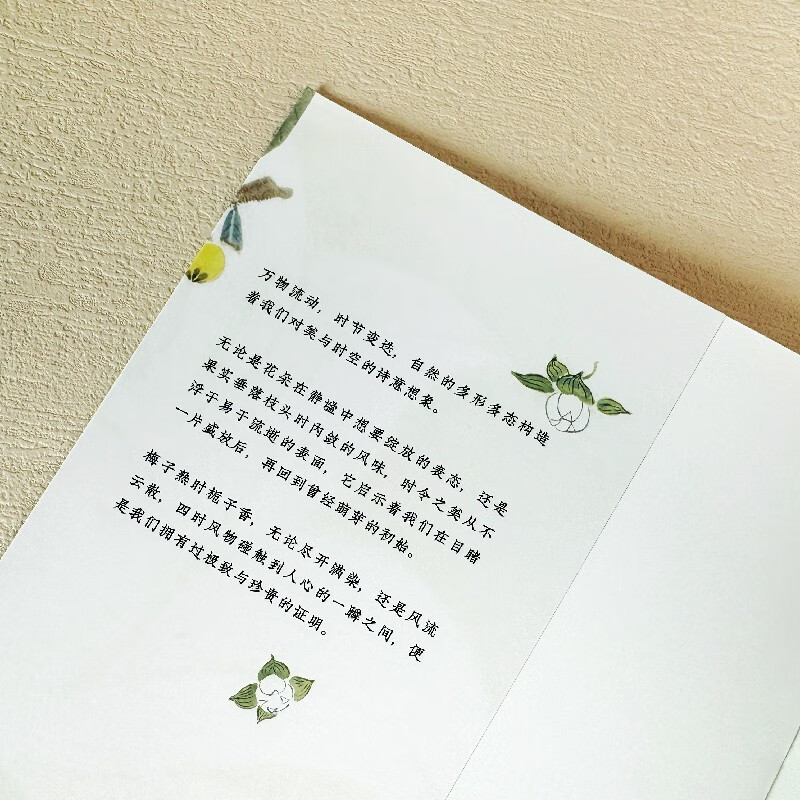 万物流动，时节变迭，自然的多形多态构造
着我们对美与时空的诗意想象。
无论是花朵在静谧中想要绽放的姿态，还是
果实垂落枝头时内敛的风味，时令之美从不
浮于易于流逝的表面，它启示着我们在目睹
一片盛放后，再回到曾经萌芽的初始。
梅子熟时栀子香，无论尽开满染，还是风流
云散，四时风物碰触到人心的一瞬之间，便
是我们拥有过极致与珍贵的证明。